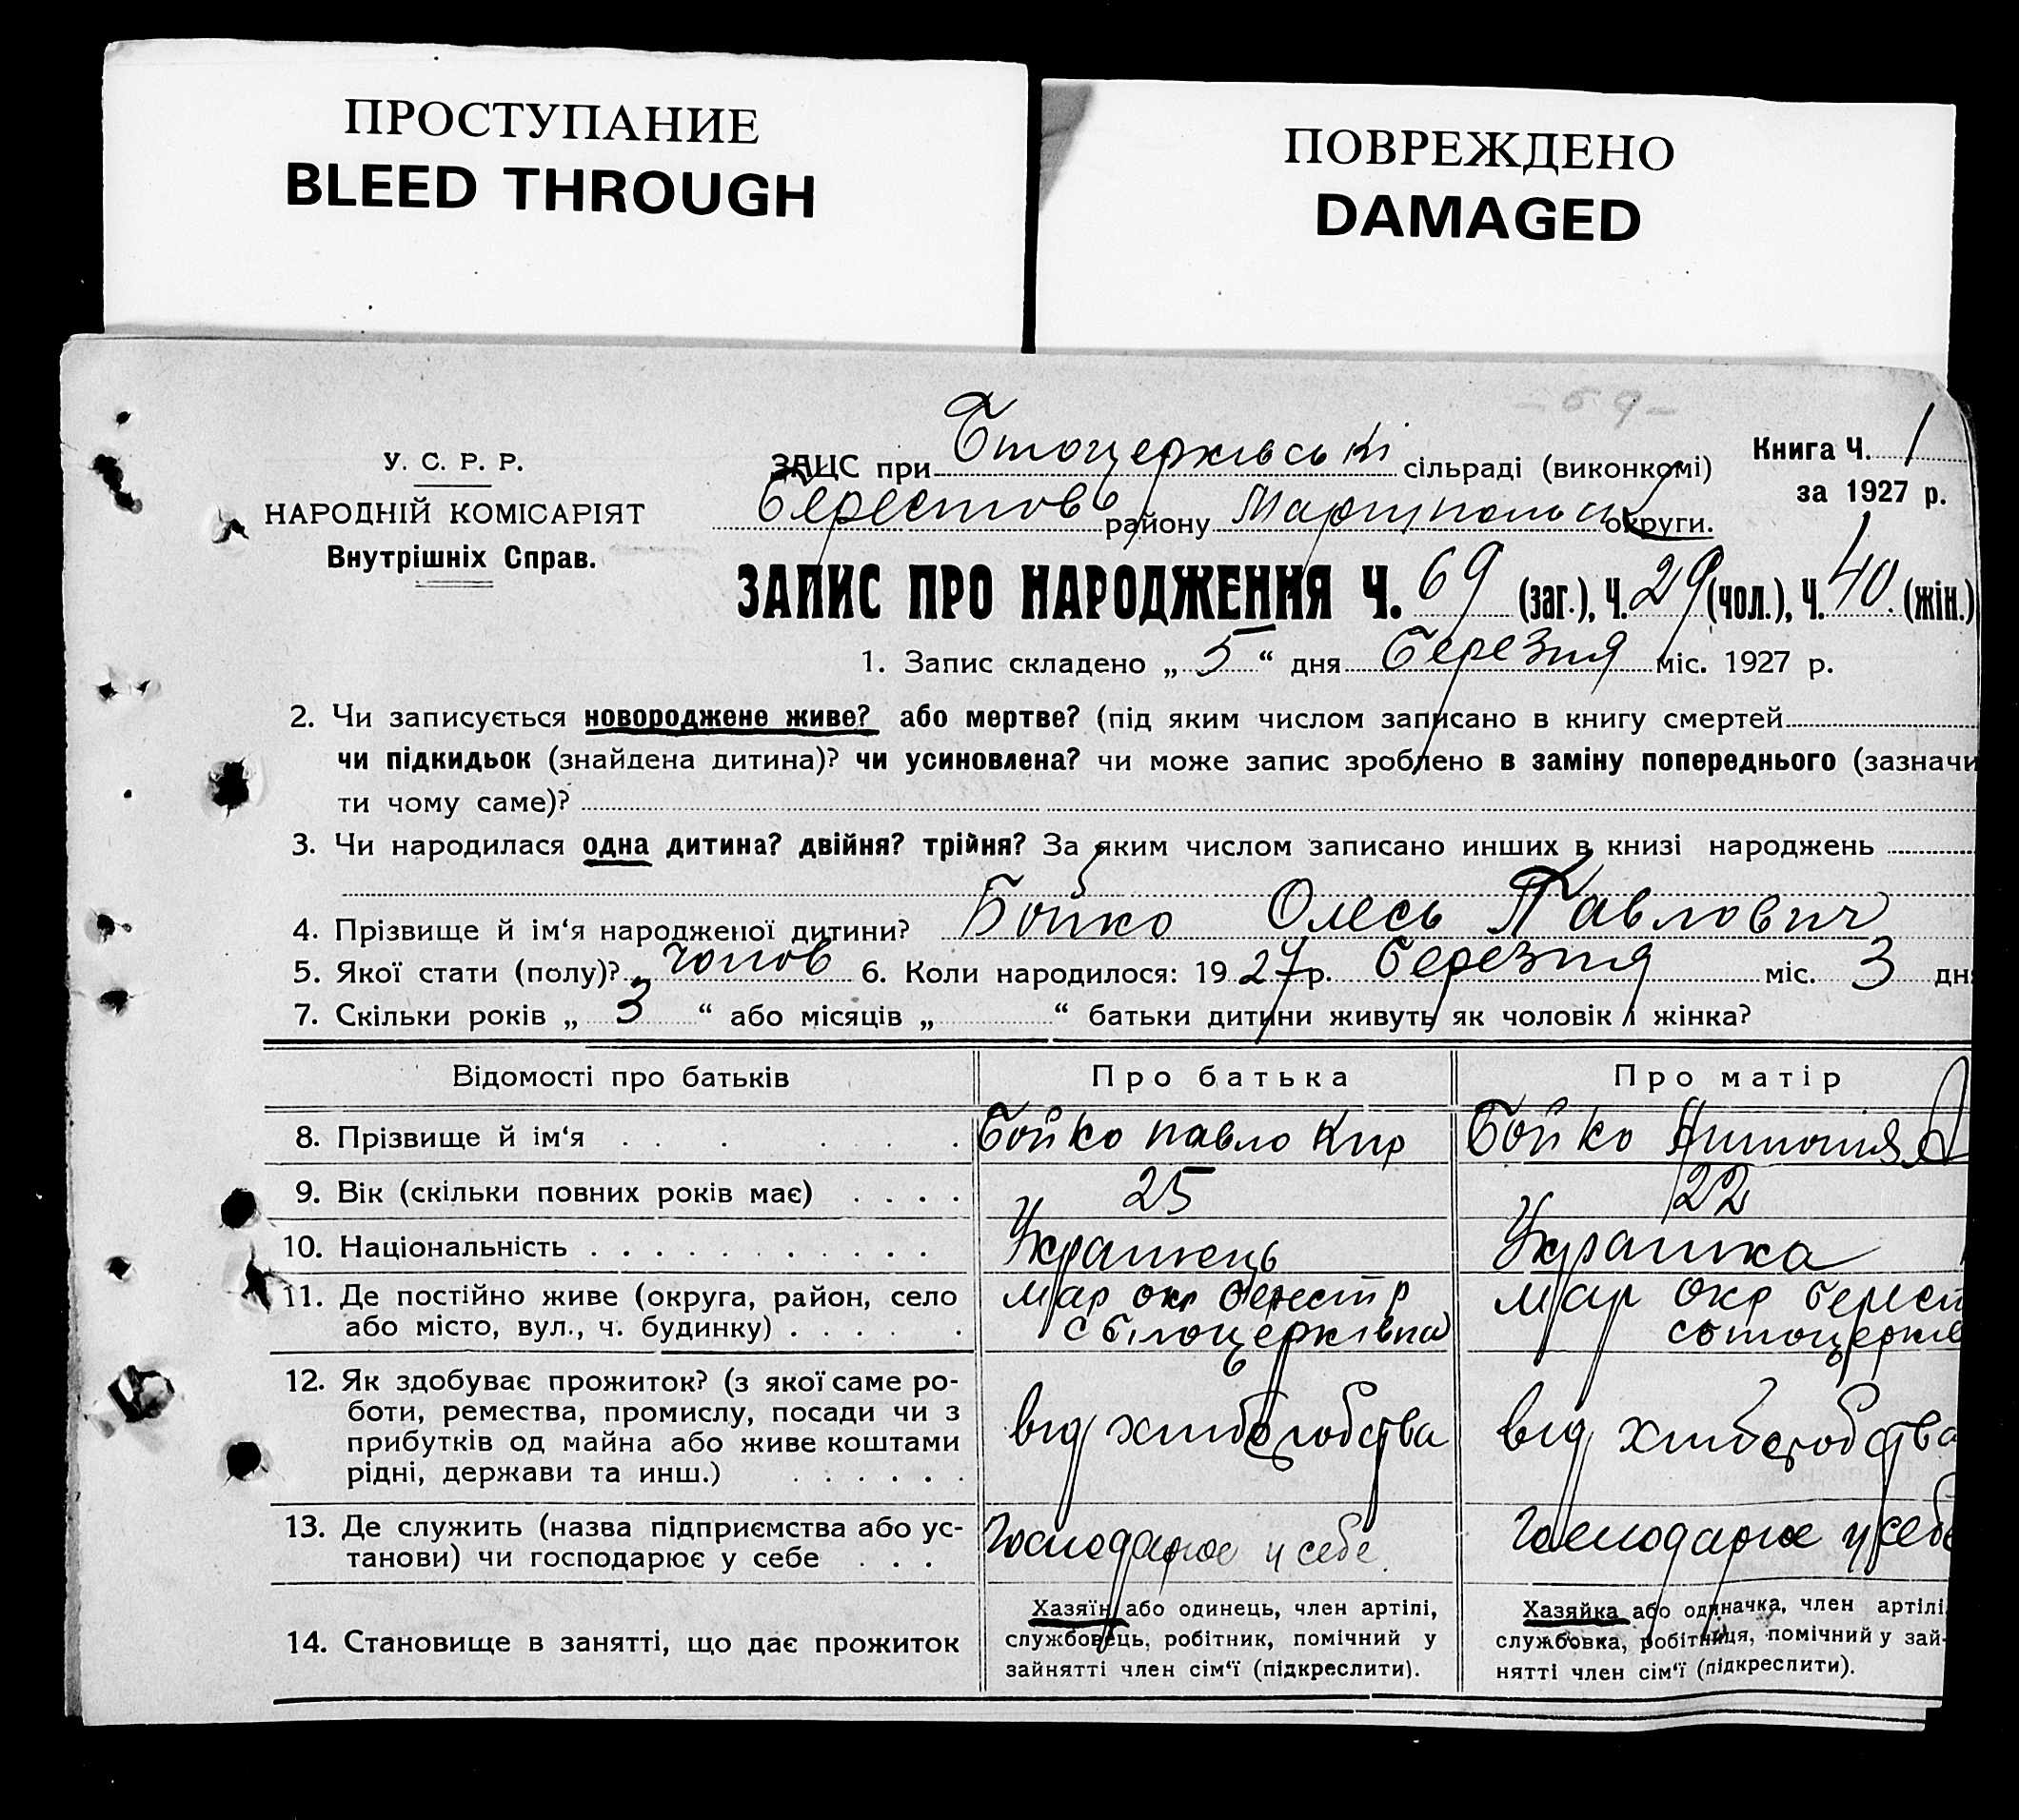 ПРОСТУПАНИЕ
BLEED THROUGH
ПОВРЕЖДЕНО
DAMAGED
- 69 -
У. С. Р. Р.
НАРОДНІЙ КОМІСАРІЯТ
Внутрішніх Справ.
ЗАЦС при Білоцерківські сільраді (виконкомі)
Берестов району Маріупольс округи.
Книга Ч. 1
за 1927 р.
ЗАПИС ПРО НАРОДЖЕННЯ Ч. 69 (заг.), Ч. 29 (чол.), Ч. 40 (жін.)
1. Запис складено „ 5 “ дня Березня міс. 1927 р.
2. Чи записується новороджене живе? або мертве? (під яким числом записано в книгу смертей
чи підкидьок (знайдена дитина)? чи усиновлена? чи може запис зроблено в заміну попереднього (зазначи
ти чому саме)?
3. Чи народилася одна дитина? двійня? трійня? За яким числом записано инших в книзі народжень
4. Прізвище й ім‘я народженої дитини? Бойко Олесь Павлович
5. Якої стати (полу)? чолов 6. Коли народилося: 1927 р. Березня міс. 3 дня
7. Скільки років „ 3 “ або місяців „ “ батьки дитини живуть як чоловік і жінка?
Відомості про батьків Про батька Про матір
8. Прізвище й ім‘я Бойко Павло Кир Бойко
9. Вік (скільки повних років має) 25 22
10. Національність Украінець Украінка
11. Де постійно живе (округа, район, село Мар окр Берест р Мар Окр Берест
або місто, вул., ч. будинку) с Білоцерківка с Білоцерків
12. Як здобуває прожиток? (з якої саме ро-
боти, ремества, промислу, посади чи з
прибутків од майна або живе коштами
рідні, держави та инш.) від хліборобства від хліборобства
13. Де служить (назва підприємства або ус-
танови) чи господарює у себе Господарює у себе Господарює у себе
14. Становище в занятті, що дає прожиток
Хазяїн або одинець, член артілі,
службовець, робітник, помічний у
зайнятті член сім‘ї (підкреслити).
Хазяйка або одиначка, член артілі,
службовка, робітниця, помічний у зай-
нятті член сім‘ї (підкреслити).